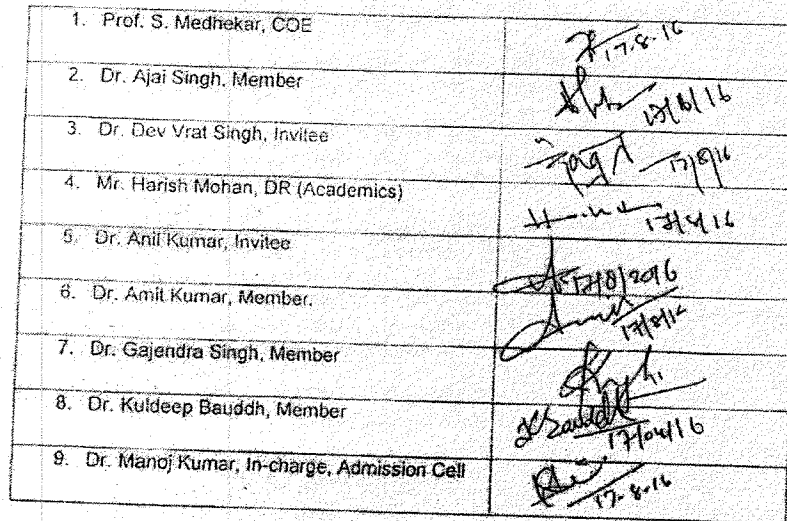 1. Prof. S. Medhekar, COE
17.8.16
2. Dr. Ajai Singh, Member
17/8/16
3. Dr. Dev Vrat Singh, Invitee
17/8/16
4. Mr. Harish Mohan, DR (Academics)
17/8/16
5. Dr. Anil Kumar, Invitee
17/8/2016
6. Dr. Amit Kumar, Member.
17/8/16
7. Dr. Gajendra Singh, Member
8. Dr. Kuldeep Bauddh, Member
KBauddh
17/08/16
9. Dr. Manoj Kumar, In-charge, Admission Cell
17-8-16